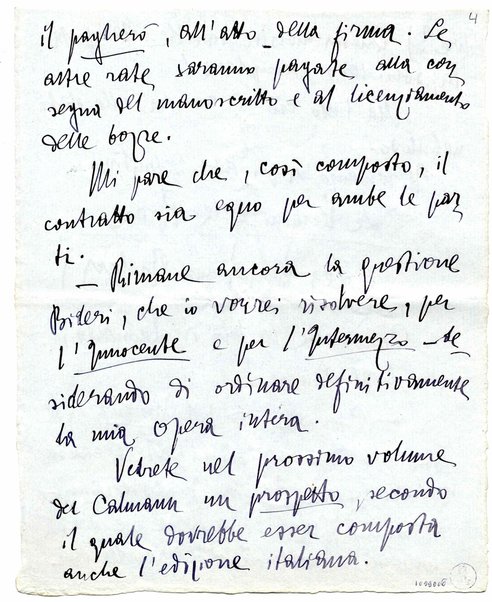 4
il pagherò, all'atto della firma. Le
altre rate saranno pagate alla con
segna del manoscritto e al licenziamento
delle bozze.
Mi pare che, così composto, il
contratto sia equo per ambe le par
ti.
— Rimane ancora la questione
Bideri, che io vorrei risolvere, per
l'Innocente e per l'Intermezzo – de
siderando di ordinare definitivamente
la mia opera intera.
Vedrete nel prossimo volume
del Calmann un prospetto, secondo
il quale dovrebbe esser composta
anche l'edizione italiana.